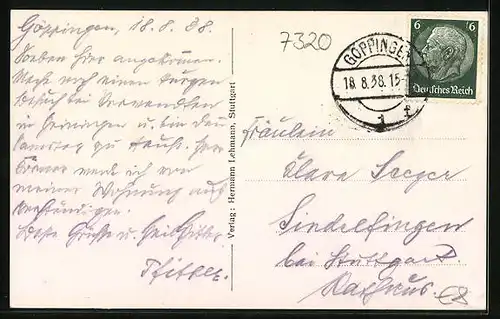 Göppingen, 18.8.38.
Soeben hier angekommen.
Mache noch einen kurzen
Besuch bei Verwandten
in Heiningen u. bin den
Samstag zu Hause.
werde ich von
meiner Wohnung aus
verständigen.
Grüße u. Heil Hitler
Pfitzer.
Verlag: Hermann Lehmann, Stuttgart
7320
GÖPPINGEN
18.8.38.15-
1 f
6 6
Deutsches Reich
Fräulein
Clara Seeger
Sindelfingen
bei Stuttgart
Rathaus.